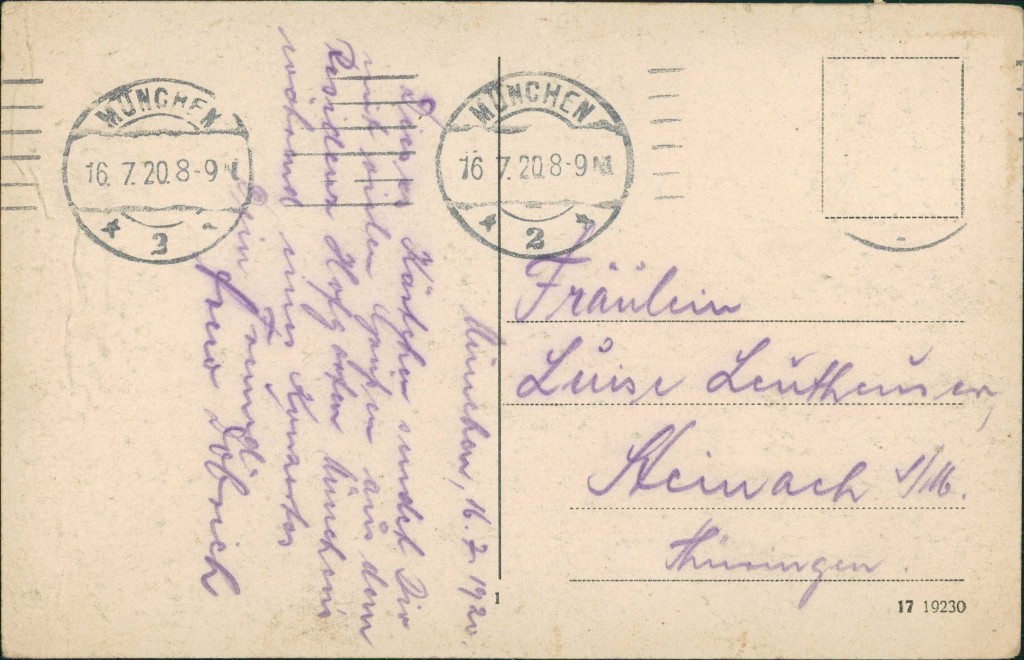 MÜNCHEN
16. 7. 20. 8-9 N
2
MÜNCHEN
16. 7. 20. 8-9 N
2
München, 16. 7. 1920.
Dieses Kärtchen sendet Dir
mit vielen Grüßen aus dem
Residenz Hofgarten München's
während eines
Dein Freund
Dobrich
Fräulein
Luise Leutheuser,
Steinach S/M.
Thüringen
1
17 19230